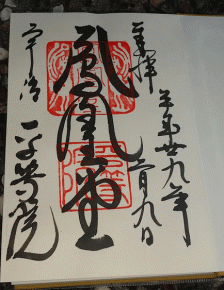 奉拝
平成廿九年
月九日
鳳凰堂
宇治
平等院